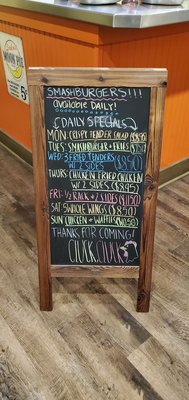 SMASHBURGERS!!!
available DAILY!
DAILY SPECIALS
MON: CRISPY TENDER SALAD
TUES: SMASHBURGER + FRIES
WED: 3 FRIED TENDERS
W/ 2 SIDES ($8.50)
THURS: CHICKEN FRIED CHICKEN
W/ 2 SIDES ($8.95)
FRI: 1/2 RACK + 2 SIDES ($11.50)
SAT: 5 WHOLE WINGS ($8.50)
SUN: CHICKEN & WAFFLES ($10.50)
THANKS FOR COMING!
CLUCK CLUCK
PIE